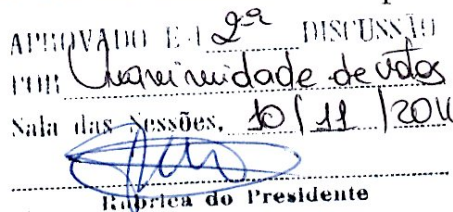 APROVADO EM 2ª DISCUSSÃO
POR Unanimidade de votos
Sala das Sessões, 10 / 11 /
Rubrica do Presidente